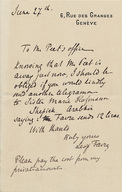 June 27th
6, Rue des Granges
Genève
To Mr Peet's office
Knowing that Mr Peet is
away just now, I should be
obliged if you would kindly
send another telegram
to Sister Marie Hofmann
saying: "Favre sends 17 liras
With thanks
truly yours
Leop Favre
Please pay the cost from my
private account